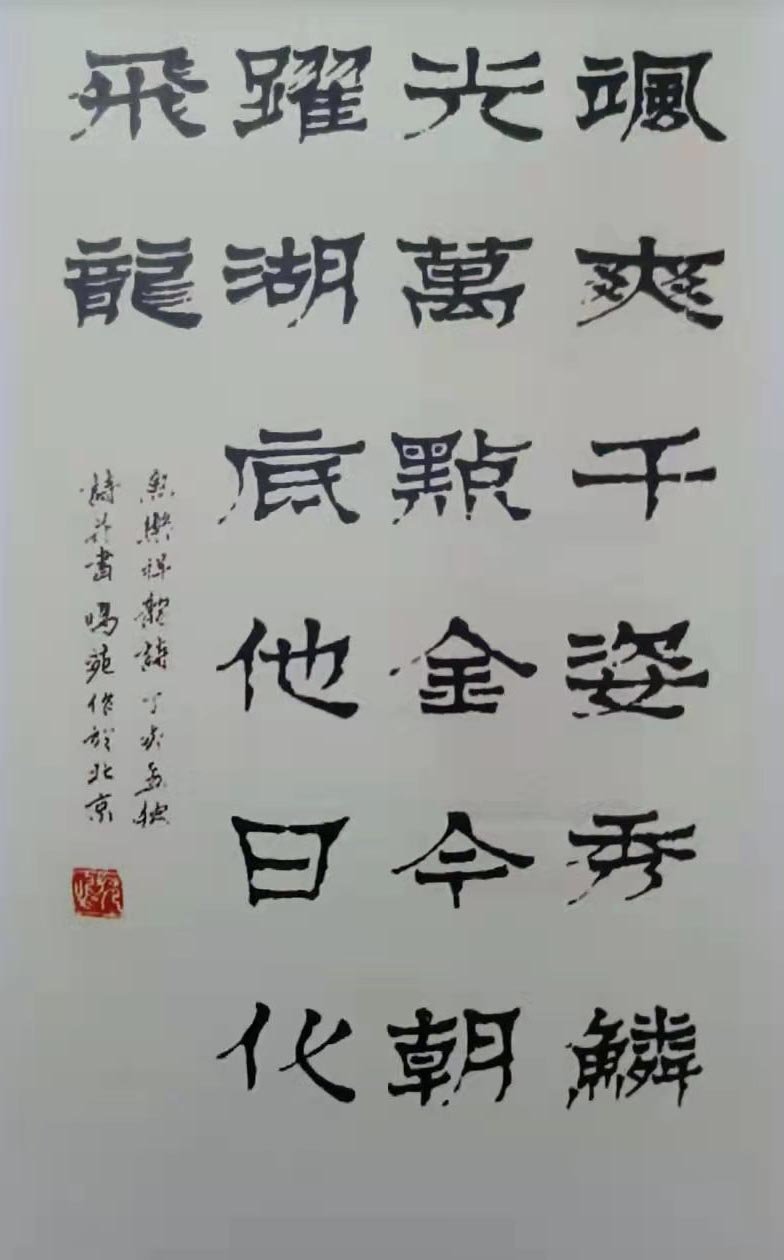 颯爽千姿秀鱗
光萬點金今朝
躍湖底他日化
飛龍
魚樂 詩丁亥
詩并書 苑作於北京